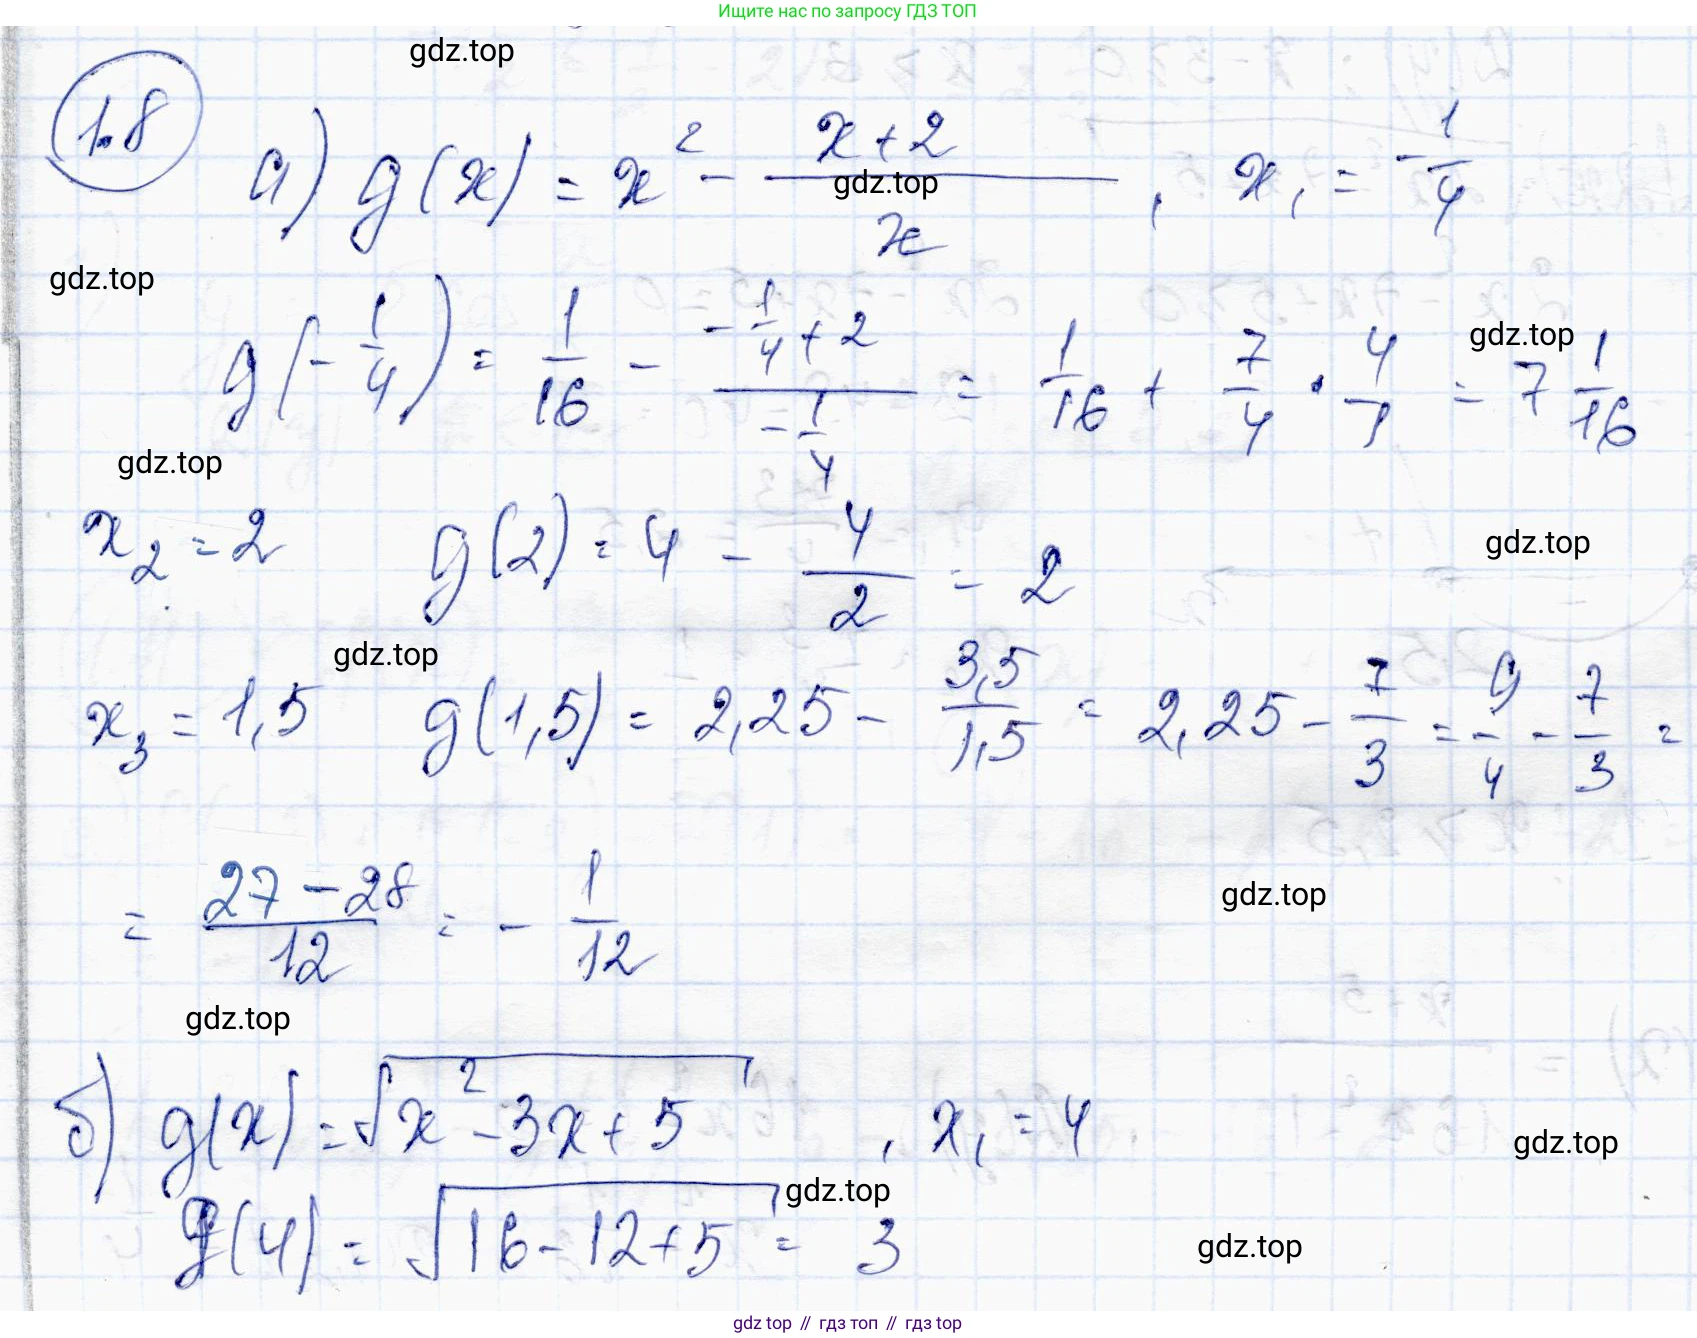 Ищите нас по запросу ГДЗ ТОП
gdz.top
1.8
а) g(x) = x² - (x+2)/x , x₁ = -1/4
gdz.top
gdz.top
g(-1/4) = 1/16 - (-1/4+2)/(-1/4) = 1/16 + 7/4 · 4/1 = 7 1/16
gdz.top
gdz.top
x₂ = 2 g(2) = 4 - 4/2 = 2
gdz.top
gdz.top
x₃ = 1,5 g(1,5) = 2,25 - 3,5/1,5 = 2,25 - 7/3 = 9/4 - 7/3 =
= (27-28)/12 = - 1/12
gdz.top
gdz.top
б) g(x) = √(x²-3x+5) , x₁ = 4
gdz.top
g(4) = √(16-12+5) = 3
gdz.top
gdz.top
gdz top // гдз топ // гдз top